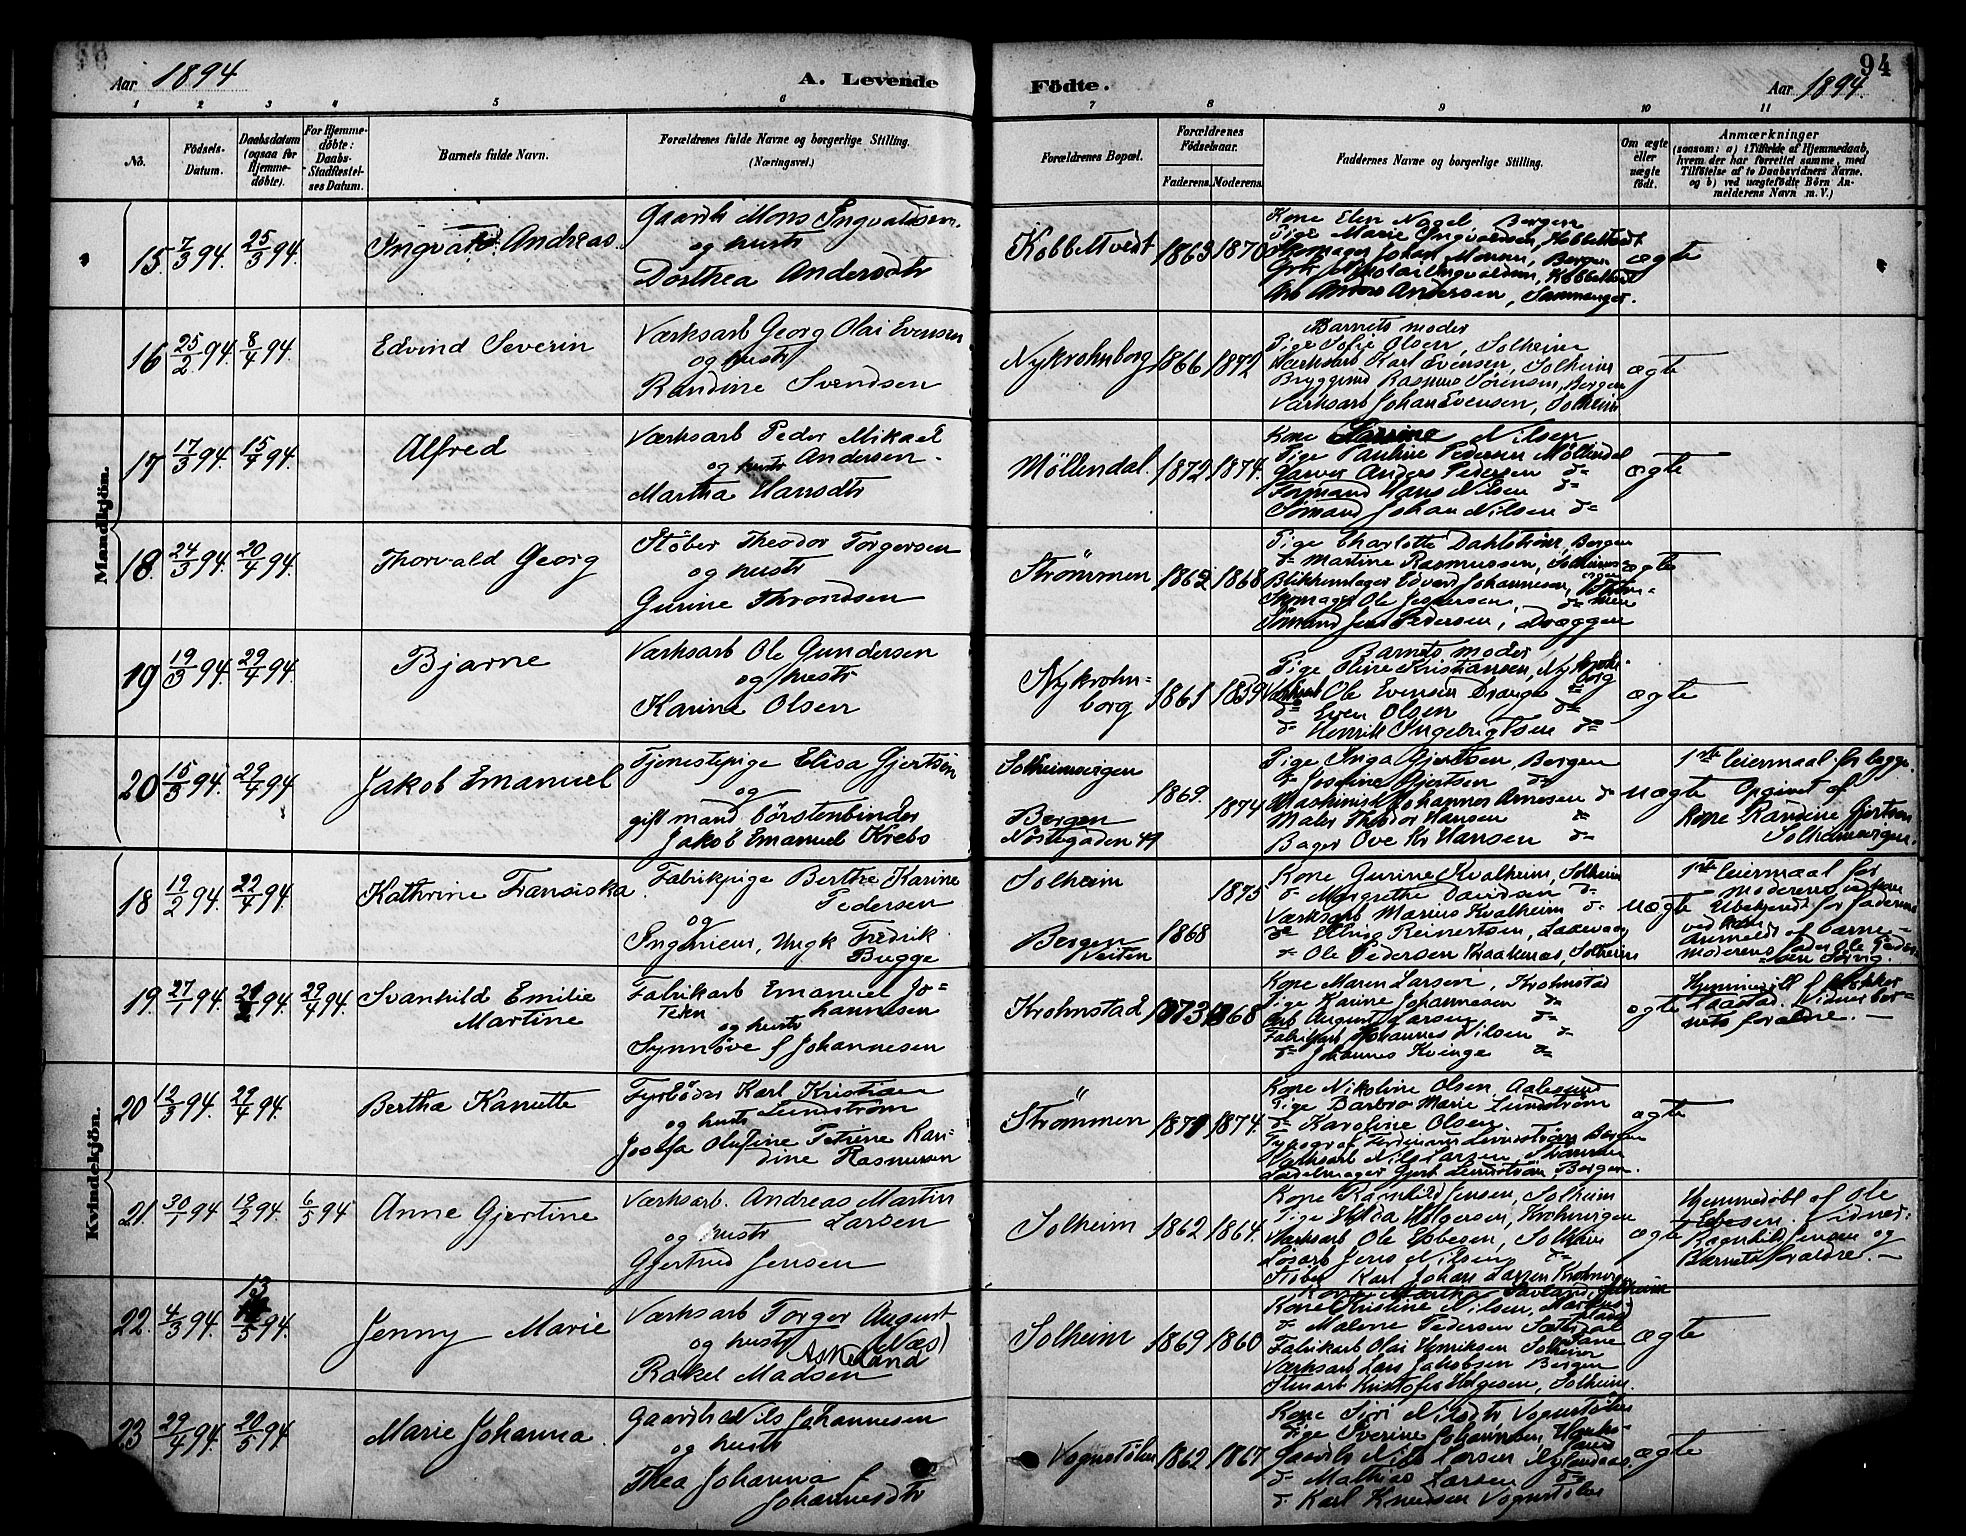 94
Aar 1894
A. Levende
Födte.
Aar 1894.
1 2 3 4 5 6 7 8 9 10 11
No.
Födsels-
Datum.
Daabsdatum
(ogsaa for
Hjemme-
döbte).
For Hjemme-
döbte:
Daabs-
Stadfæstel-
ses Datum.
Barnets fulde Navn.
Forældrenes fulde Navne og borgerlige Stilling.
(Næringsvei.)
Forældrenes Bopæl.
Forældrenes
Födselsaar.
Faderens. Moderens.
Faddernes Navne og borgerlige Stilling.
Om ægte
eller
uægte
födt.
Anmærkninger
(saasom: a) i Tilfælde af Hjemmedaab,
hvem der har forrettet samme, med
Tilföielse af to Daabsvidners Navne.
og b) ved uægtefödte Börn An-
melderens Navn m. V.)
Mandkjön.
15 7/3 94. 25/3 94.
Ingvald Andreas.
Gaardb Mons Ingvaldsen.
og hustr
Dorthea Andersdtr
Kobbeltvedt 1863 1870
Kone Elen Nagel Bergen
Pige Marie Ingvaldsen, Kobbeltvedt
Skomager Johan Monsen, Bergen
Nikolai Ingvaldsen, Kobbeltvedt
Arb Anders Andersen, Sammanger.
ægte
16 25/2 94. 8/4 94.
Edvind Severin
Værksarb Georg Olai Evensen
og hustr
Randine Svendsen
Nykrohnborg 1866 1872
Barnets moder
Pige Sofie Olsen, Solheim
Værksarb Karl Evensen, Solheim
Bryggemd Rasmus Sörensen, Bergen
Værksarb Johan Evensen, Solheim
ægte
17 17/3 94. 15/4 94.
Alfred
Værksarb Peder Mikael
og hustr Andersen.
Martha Hansdtr
Möllendal. 1872 1874.
Kone Nilsen
Pige Pauline Pedersen Möllendal
Garver Anders Pedersen d=
Formand Hans Nilsen d=
Sömand Johan Nilsen d=
ægte
18. 24/3 94. 20/4 94.
Thorvald Georg
Støber Theodor Torgersen
og hustr
Gurine Throndsen
Strømmen 1862 1868
Pige Charlotte Dahlström, Bergen
d= Martine Rasmussen, Solheims-
Blikkenslager Edvard Johannesen,
Skomager Ole Jespersen, d=
Sömand Jens Pedersen, Dræggen
ægte
19 19/3 94. 29/4 94.
Bjarne
Værksarb Ole Gundersen
og hustr
Karine Olsen
Nykrohn=
borg 1861 1859
Barnets moder
Pige Oline Kristiansen, Nykrohn-
borg
Ole Evensen Drange d=
d= Even Olsen d=
d= Henrik Ingebrigtsen d=
ægte
20 15/3 94. 29/4 94
Jakob Emanuel
Tjenestepige Elisa Gjertsen
og
gift mand börstenbinder
Jakob Emanuel Krebs
Solheimsvigen
Bergen
Nöstegaden 49
1869. 1874
Pige Inga Gjertsen, Bergen
d= Josefine Gjertsen d=
Maskinist Johannes Arnesen d=
Maler Theodor Hansen d=
Bager Ove Kr Hansen d=
uægte
1ste leiermaal for begge.
Opgivet af
Kone Randine Gjertsen
Solheimsvigen.
Kvindekjön.
18 19/2 94. 22/4 94.
Kathrine Fransiska
Fabrikpige Berthe Karine
Pedersen
og
Ingeniеur, Ungk Fredrik
Bugge
Solheim
Bergen
1875 1868
Kone Gurine Kvalheim, Solheim
d= Margrethe Davidsen d=
Værksarb Marius Kvalheim d=
d= Reinertsen, Laxevaag
d= Ole Pedersen Kraakenæs, Solheim
uægte
1ste leiermaal for
moderens vedkom
Ubekjendt for faderens
ved kom
Anmeldt af barne-
moderens fader Ole Peder-
sen
19 27/1 94. 94. 29/4 94.
Svanhild Emilie
Martine
Fabrikarb Emanuel Jo=
hannesen
og hustr
Synnöve f Johannesen
Krohnstad 1873 1868
Kone Maren Larsen, Krohnstad
Pige Karine Johannesen d=
Arb August Larsen d=
Fabrikarb Johannes Nilsen d=
d= Johannes Kvinge d=
ægte
Vidner bar-
nets forældre.—
20 12/3 94. 29/4 94.
Bertha Kanutte
Fyrböder Karl Kristian
og hustr Lundström
Josefa Olufine Petrine Ran-
dine Rasmussen
Strømmen 1871 1874.
Kone Nikoline Olsen, Aalesund
Pige Barbro Marie Lundström
d= Karoline Olsen
Typograf Ferdinand Lundström Bergen
Værksarb Nils Larsen, Strømmen
Sadelmager Gjert Lundström Bergen.
ægte
21. 30/1 94 19/2 94. 6/5 94
Anne Gjertine
Værksarb. Andreas Martin
Larsen
og hustr
Gjertrud Jensen
Solheim 1862 1864.
Kone Ragnhild Jensen, Solheim
Pige Hilda Holgersen, Krohnvigen
Værksarb Ole Ebbesen, Solheim
Lösarb Jens Nilsen d=
Støber Karl Johan Larsen Krohnvigen
ægte
Hjemmedöbt af Ole
Ebbesen. Vidner:
Ragnhild Jensen og
Barnets forældre.—
22. 4/3 94. 13/5 94.
Jenny Marie
Værksarb Torger August
og hustr Næs)
Askeland
Rakel Madsen
Solheim 1869 1860
Kone Martha Solheim
Kone Kristine Nilsen, Markus-
plads
d= Malene Pedersen Sætredal
Fabrikarb Olai Henriksen Solheim
Værksarb Lars Jakobsen Bergen
Stenarb Kristofer Helgesen, Solheim.
ægte
23 29/4 94. 20/5 94
Marie Johanna.
Gaardb Nils Johannesen
og hustr
Thea Johanna f
Johannesdtr
Vognstölen 1862 1867
Kone Siri Nilsdtr Vognstölen
Pige Severine Johannesen,
Gaardb Nils Larsen
d= Mathias Larsen d=
d. Karl Knudsen Vognstölen
ægte